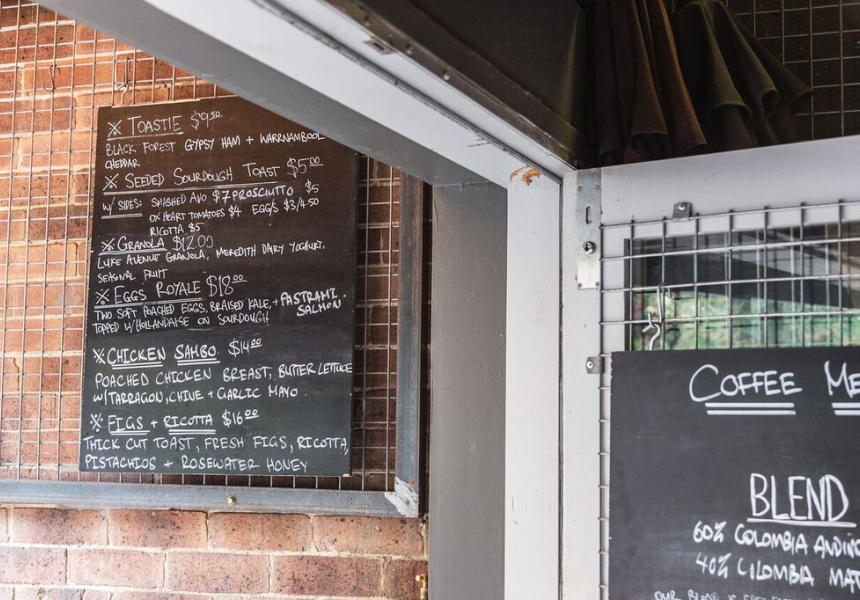 ※ TOASTIE $9.50
BLACK FOREST GYPSY HAM + WARRNAMBOOL
CHEDDAR
※ SEEDED SOURDOUGH TOAST $5.00
W/ SIDES: SMASHED AVO $7 PROSCIUTTO $5
OX HEART TOMATOES $4 EGG/S $3/4.50
RICOTTA $5
※ GRANOLA $12.00
LUKE AVENUE GRANOLA, MEREDITH DAIRY YOGHURT,
SEASONAL FRUIT
※ EGGS ROYALE $18.00
TWO SOFT POACHED EGGS, BRAISED KALE, + PASTRAMI
SALMON
TOPPED W/HOLLANDAISE ON SOURDOUGH
※ CHICKEN SAMBO $14.00
POACHED CHICKEN BREAST, BUTTER LETTUCE
W/TARRAGON, CHIVE + GARLIC MAYO
※ FIGS + RICOTTA $16.00
THICK CUT TOAST, FRESH FIGS, RICOTTA,
PISTACHIOS + ROSEWATER HONEY
COFFEE ME
BLEND
60% COLOMBIA ANDINO
40% CILOMBIA MA
OUR BLEND IS